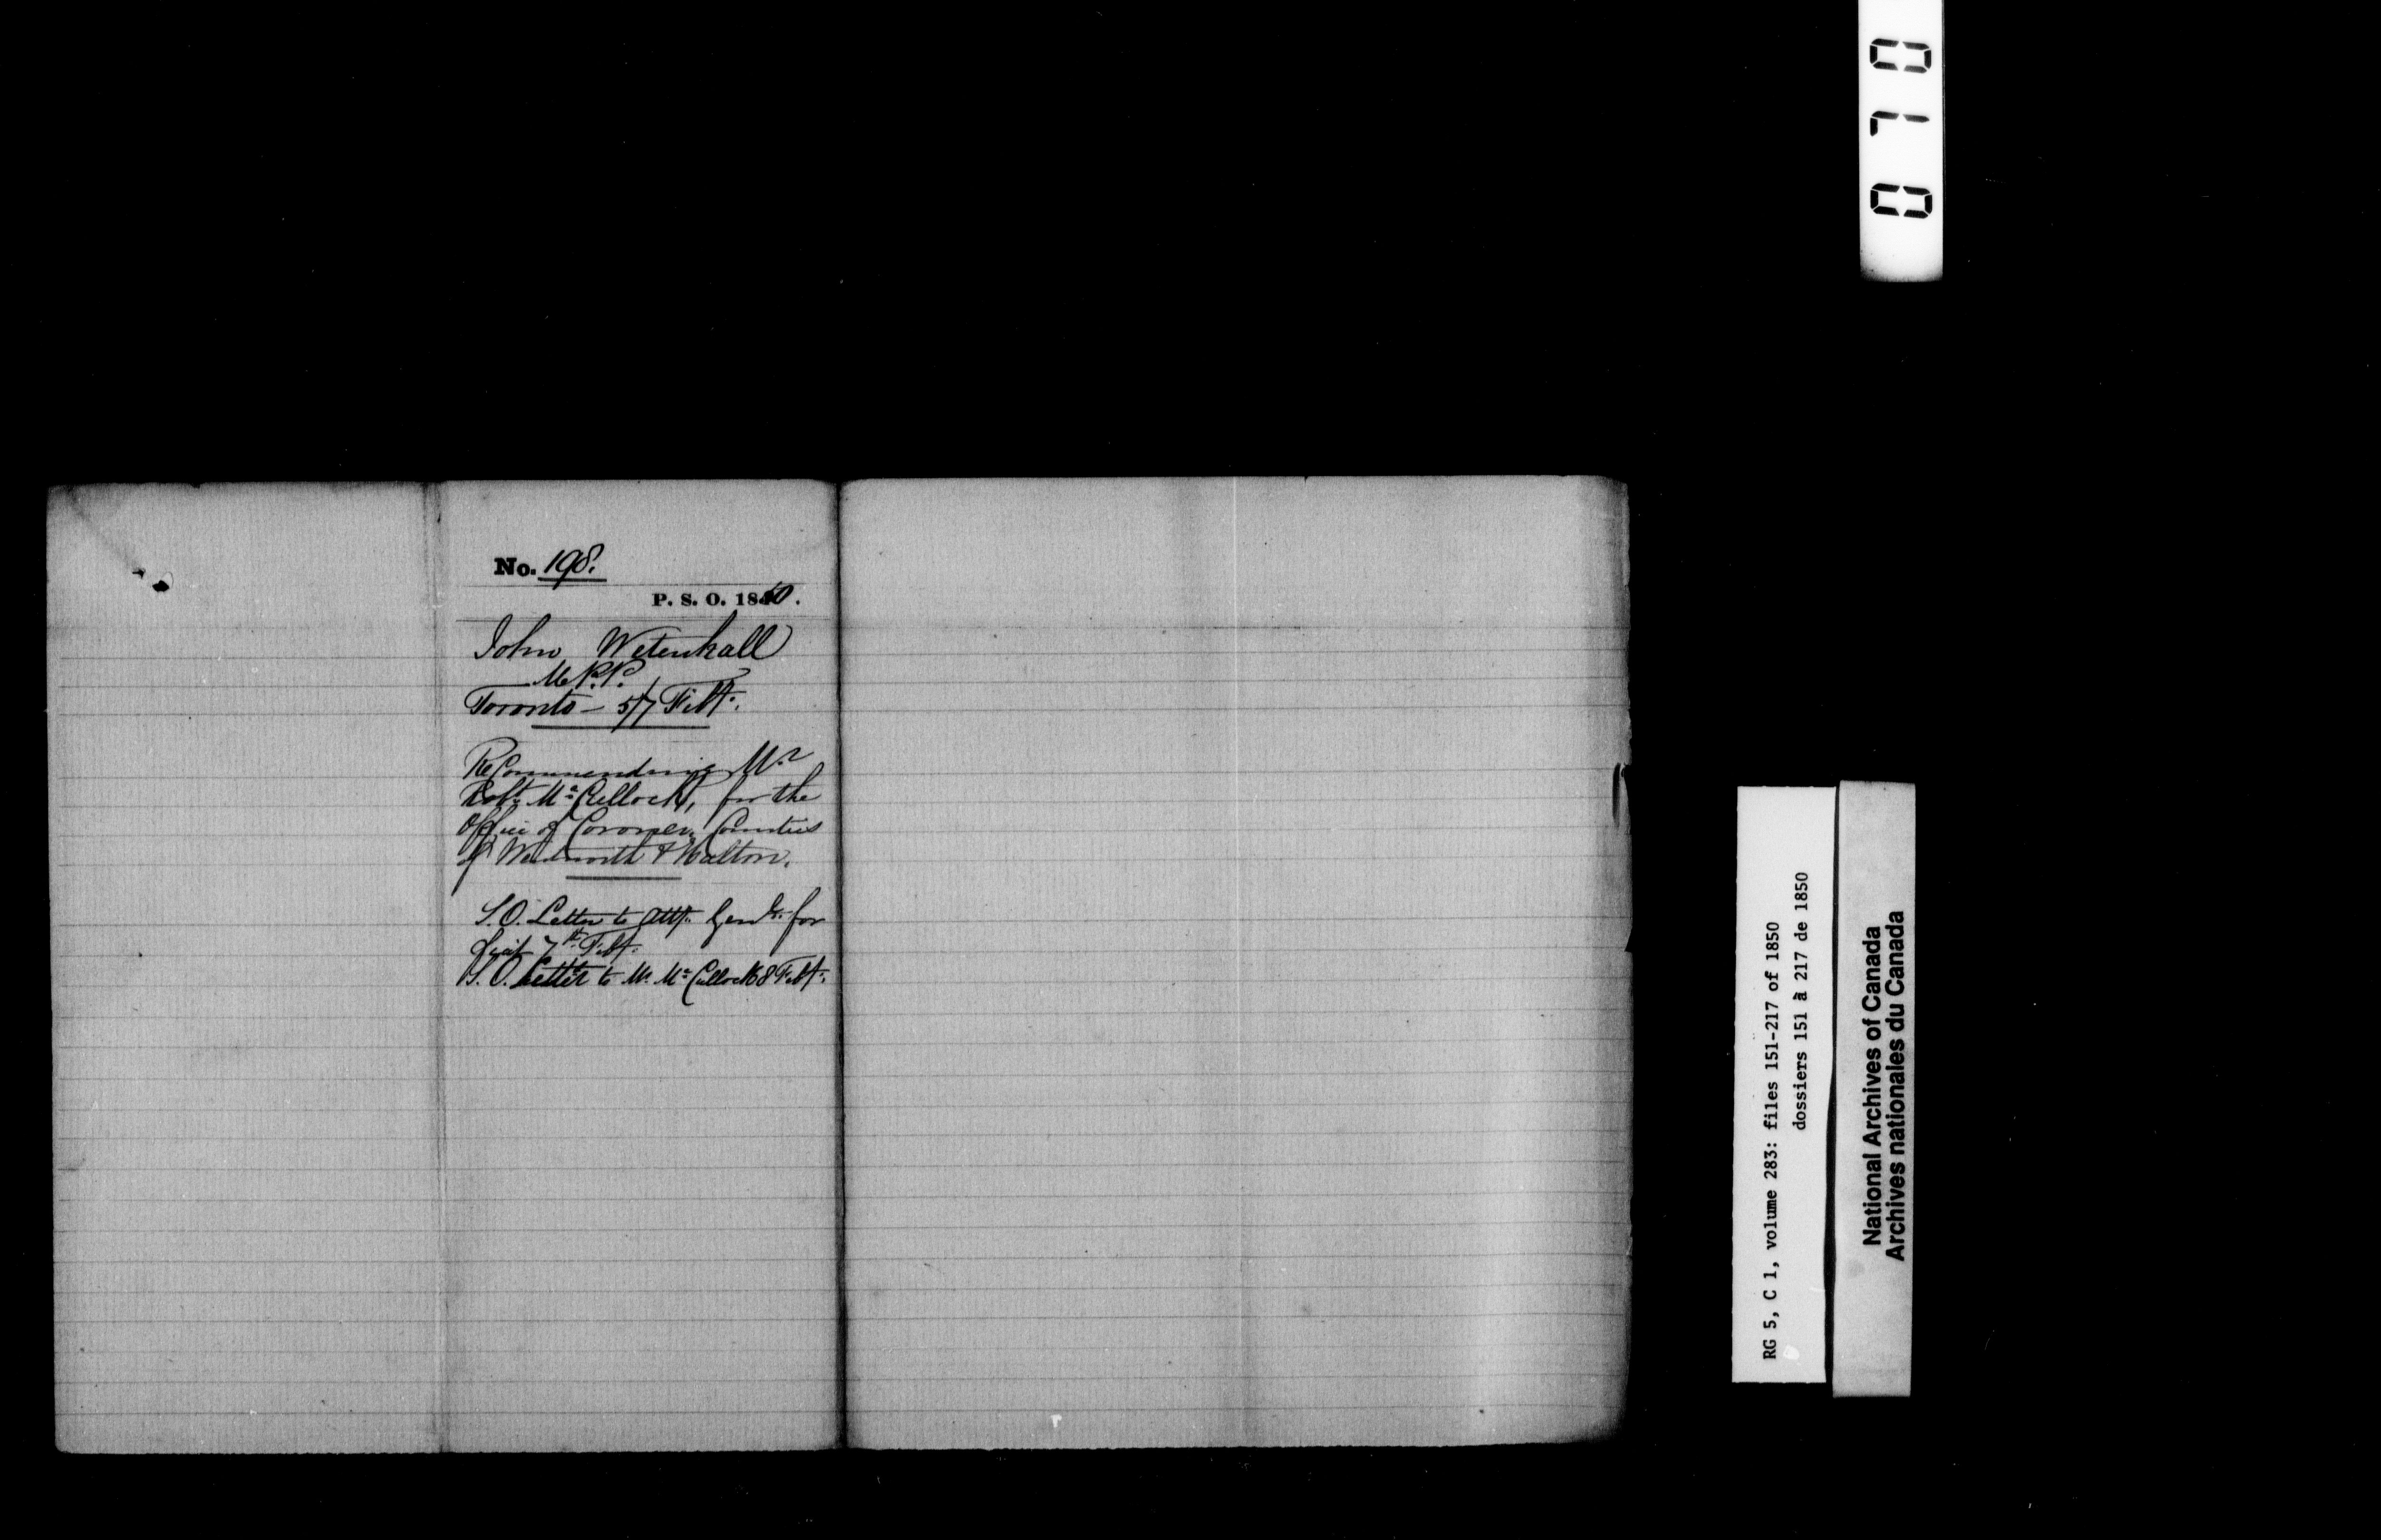 No. 198.
P. S. O. 1850.
John Wetenhall
M.P.P.
Toronto — 5/7 Feby.
Recommending Mr
Robt. McCulloch, for the
Office of Coroner, Counties
of Wentworth & Halton.
S.O. Letter to Atty. Genl. for
fiat 7th Feby.
S.O. Letter to Mr. McCulloch 8 Feby.
RG 5, C 1, volume 283: files 151-217 of 1850
dossiers 151 à 217 de 1850
National Archives of Canada
Archives nationales du Canada
0 7 0